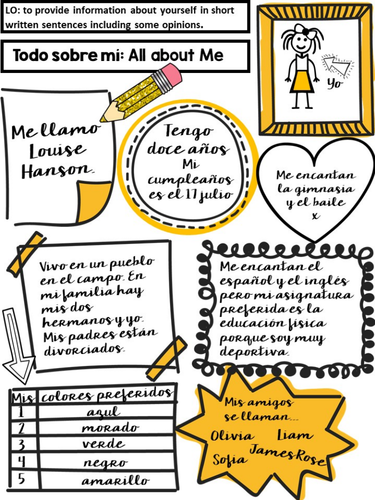 LO: to provide information about yourself in short
written sentences including some opinions.
Todo sobre mí: All about Me
Yo
Me llamo
Louise
Hanson.
Tengo
doce años
Mi
cumpleaños
es el 17 julio
Me encantan
la gimnasia
y el baile
x
Vivo en un pueblo
en el campo. En
mi familia hay
mis dos
hermanos y yo.
Mis padres están
divorciados.
Me encantan el
español y el inglés
pero mi asignatura
preferida es la
educación física
porque soy muy
deportiva.
Mis colores preferidos
1 azul
2 morado
3 verde
4 negro
5 amarillo
Mis amigos
se llaman....
Olivia Liam
Sofia James Rose